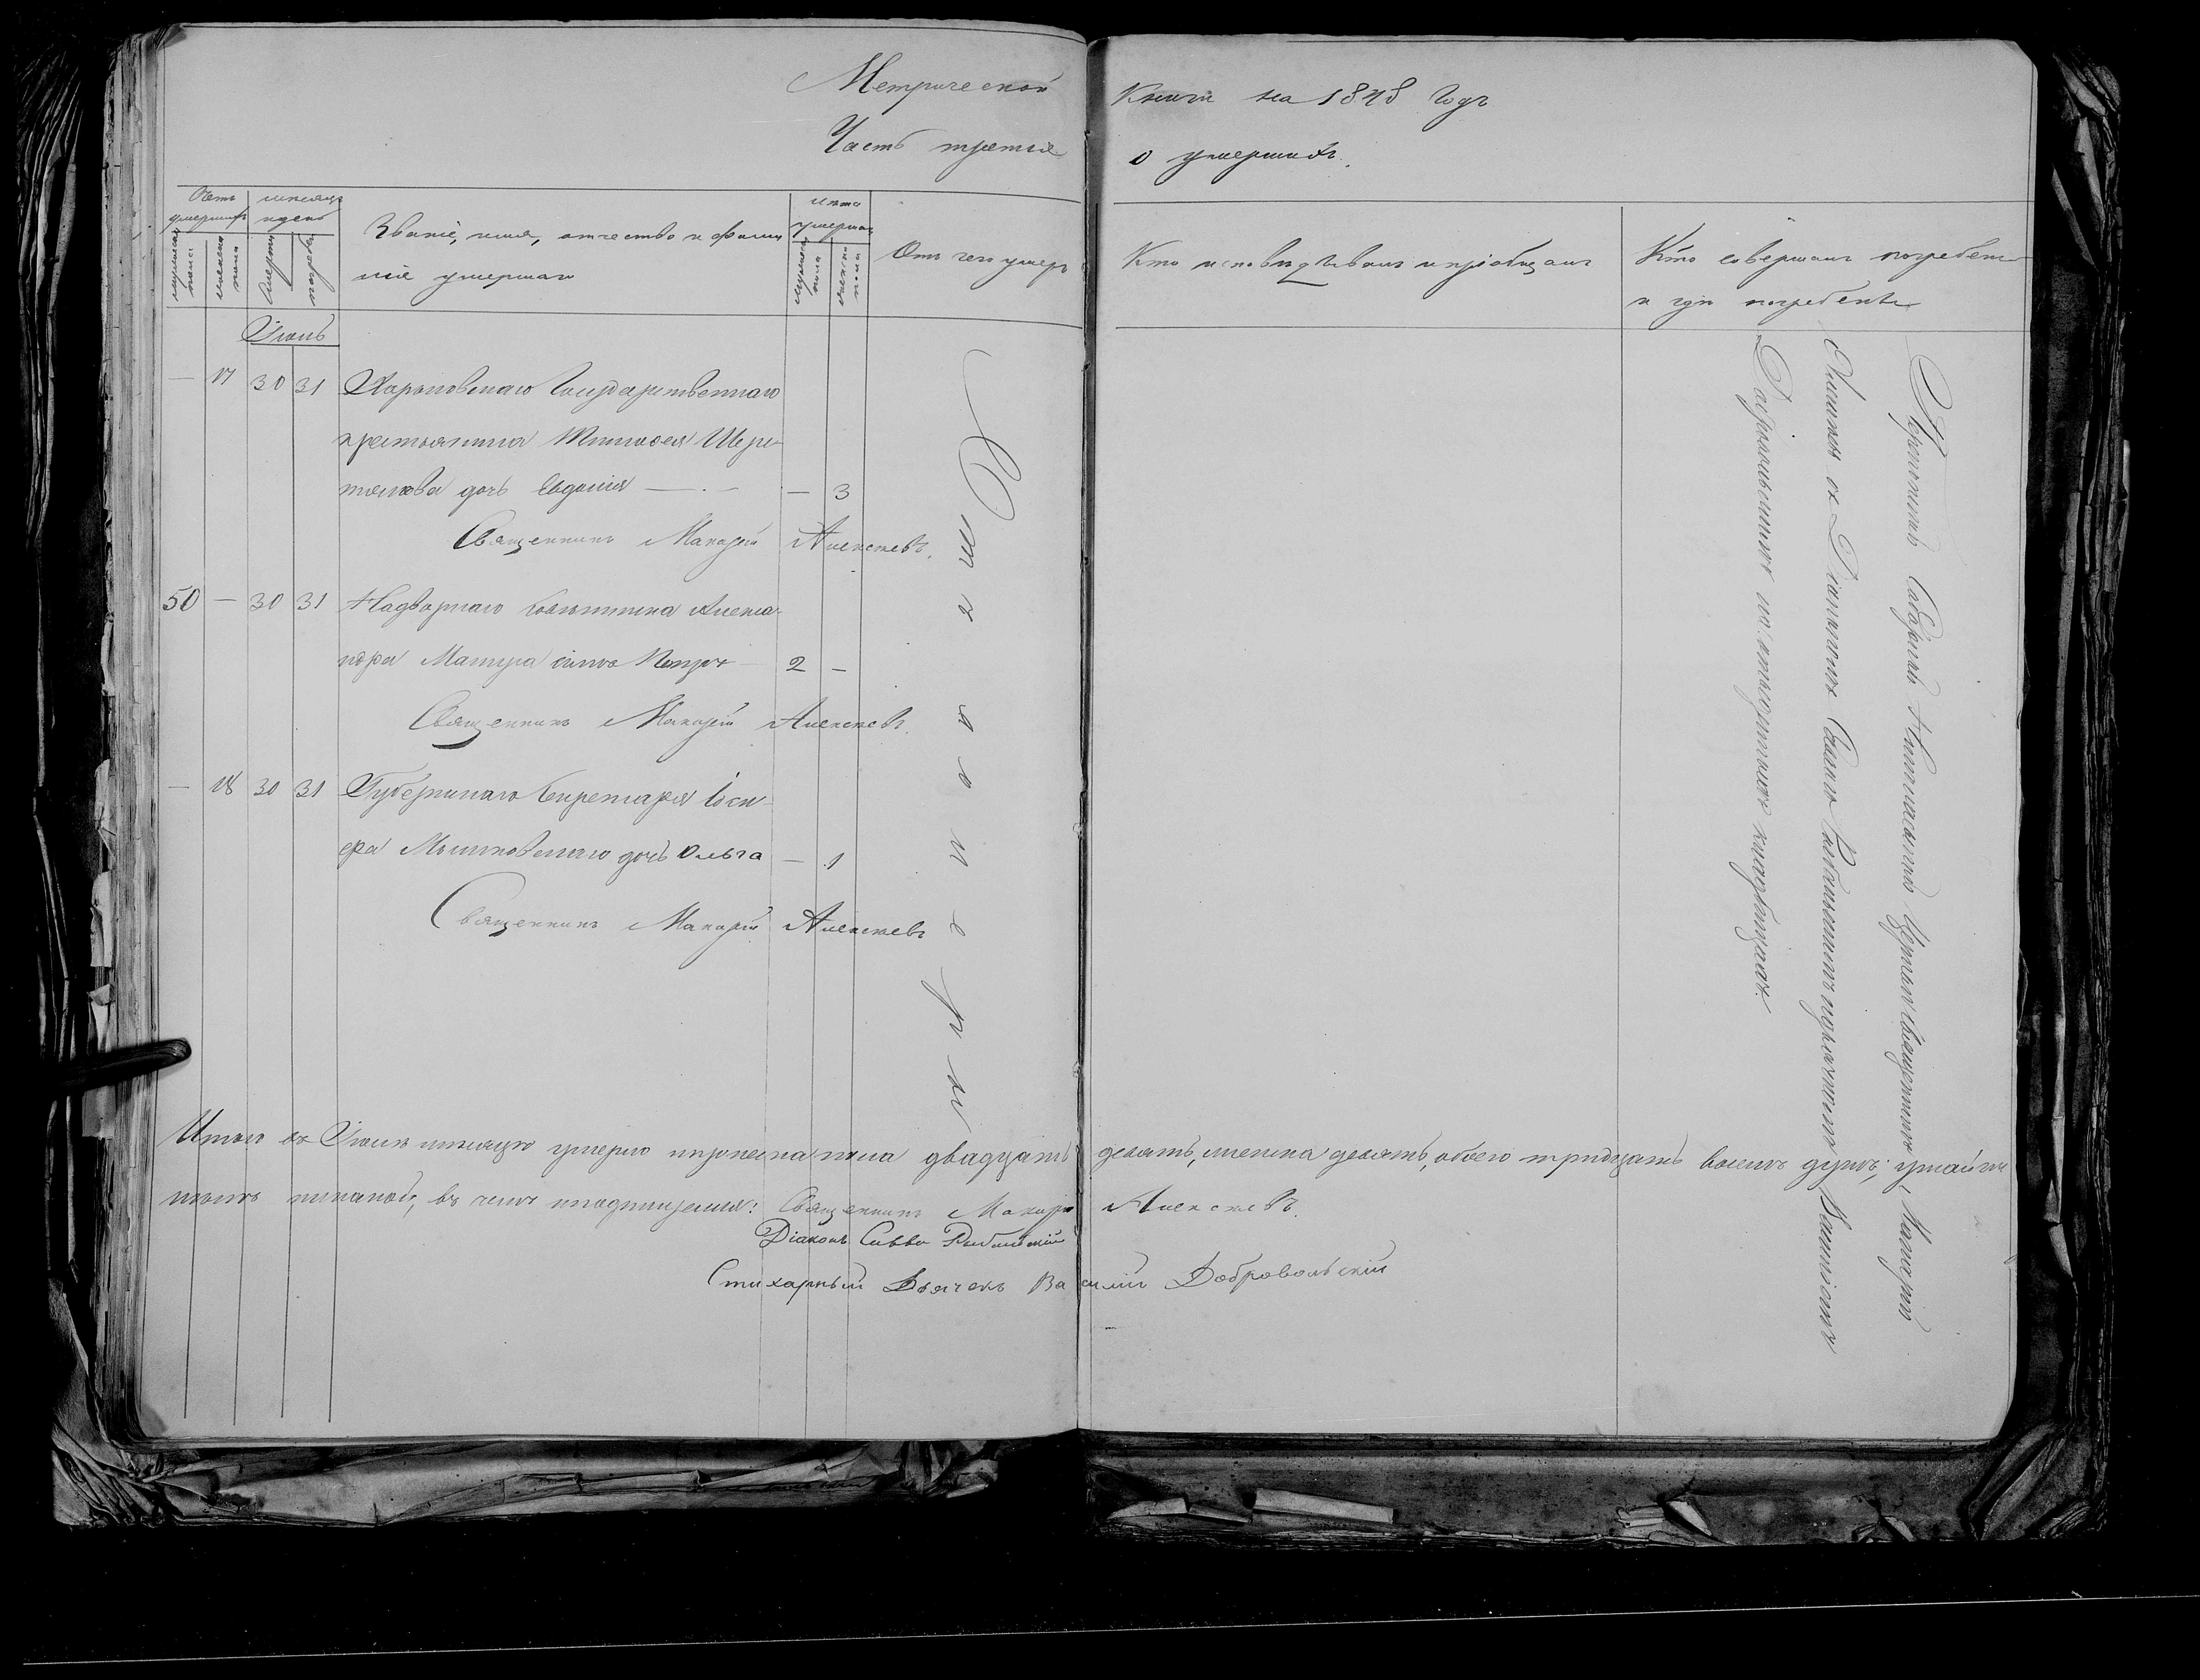 Метрической Книги на 1848 Годъ
Часть третья о умершихъ.
Счетъ умершихъ
мужеска пола
женска пола
мѣсяцъ и день
смерти
погребен
Званіе, имя, отчество и фамилія умершаго
Лѣта умершаго
мужеска пола
женска пола
Отъ чего умеръ
Кто исповѣдывалъ и пріобщалъ
Кто совершалъ погребеніе
и гдѣ погребены
Іюль
— 17 30 31 Харьковскаго Государственнаго
крестьянина Тимоѳея
дочь Евдокія — — 3
Священникъ Макарій Алексѣевъ.
50 — 30 31 Надворнаго Совѣтника Алекса-
ндра Мацуга сынъ Петръ 2 —
Священникъ Макарій Алексѣевъ.
— 18 30 31 Губернскаго Секретаря Іоси-
фа дочь Ольга — 1
Священникъ Макарій Алексѣевъ
Отъ холеры
Священникъ Макарій
съ Діакономъ Саввою Рыбальскимъ и дьячкомъ Василіемъ
Добровольскимъ на кладбищахъ.
Итого въ Іюлѣ мѣсяцѣ умерло мужеска пола двадцать девять, женска девять, обоего тридцать восемь душъ;
въ чемъ и подписуемся: Священникъ Макарій Алексѣевъ.
Діаконъ Савва Рыбальскій
Стихарный Дьячекъ Василій Добровольскій